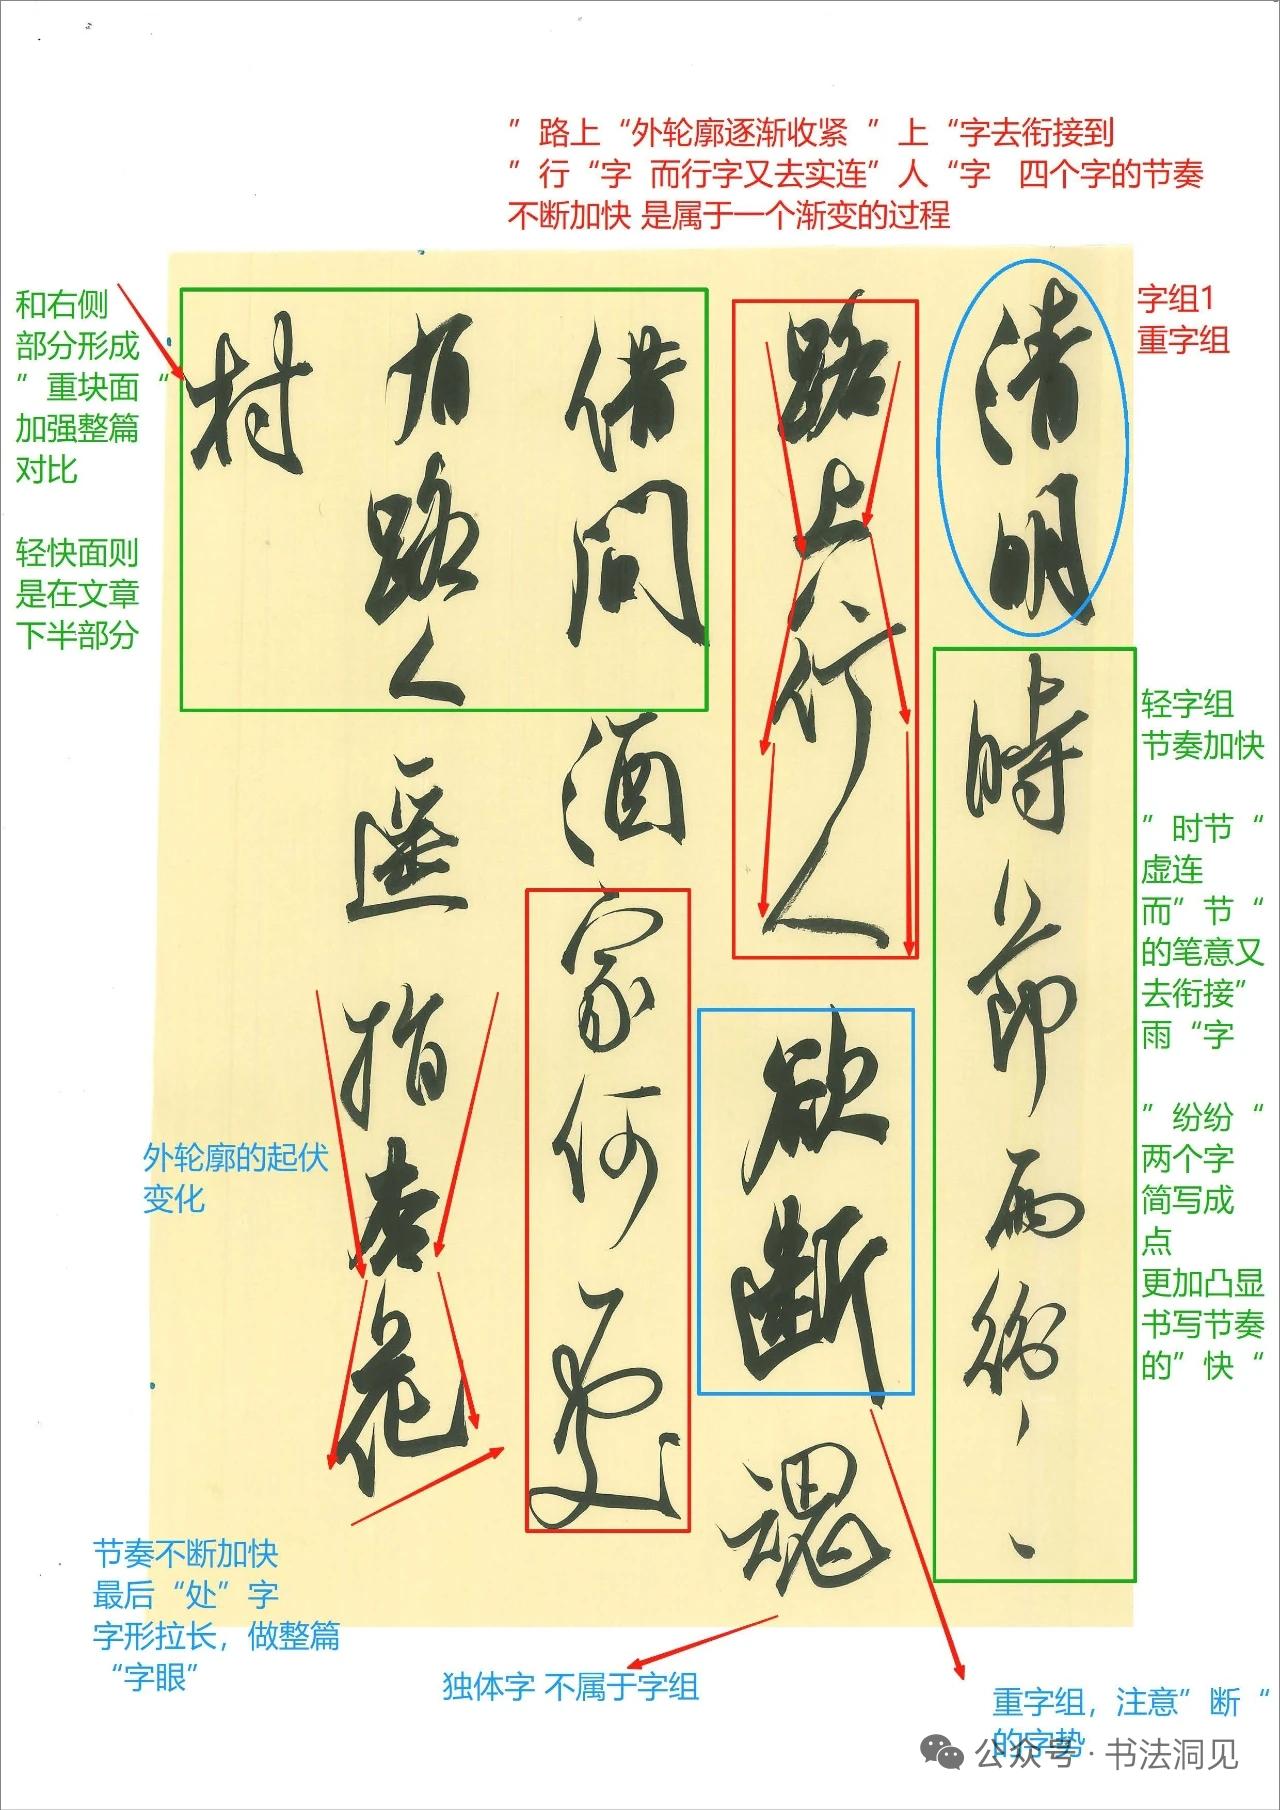 ”路上“外轮廓逐渐收紧 ”上“字去衔接到
”行“字 而行字又去实连”人“字 四个字的节奏
不断加快 是属于一个渐变的过程
字组1
重字组
清明時節雨紛、、
路上行人欲断魂
借问酒家何處
有路人遥指杏花
村
和右侧
部分形成
”重块面“
加强整篇
对比
轻快面则
是在文章
下半部分
轻字组
节奏加快
”时节“
虚连
而”节“
的笔意又
去衔接”
雨“字
”纷纷“
两个字
简写成
点
更加凸显
书写节奏
的”快“
外轮廓的起伏
变化
节奏不断加快
最后“处”字
字形拉长，做整篇
“字眼”
独体字 不属于字组
重字组，注意”断“
的字势
公众号·书法洞见